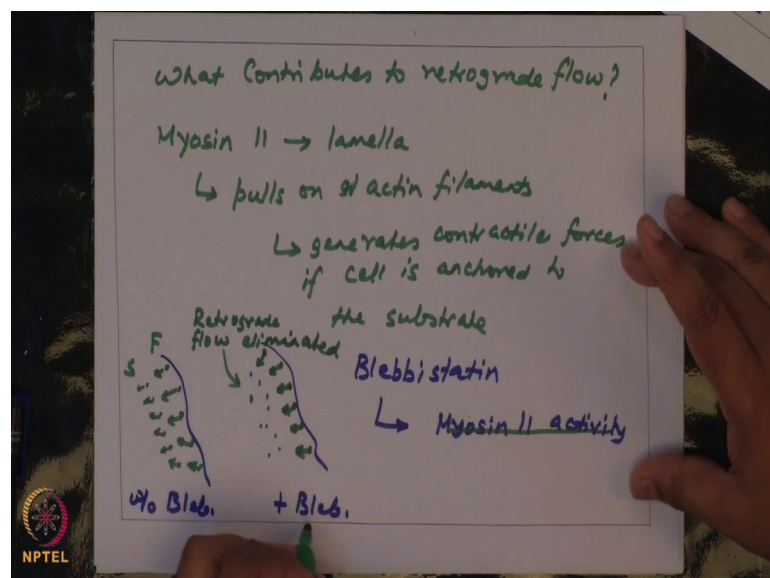 What Contributes to retrograde flow?
Myosin II → lamella
↳ pulls on actin filaments
↳ generates contractile forces
if cell is anchored to
the substrate
Retrograde
flow eliminated
F
S
Blebbistatin
↳ Myosin II activity
w/o Bleb.
+ Bleb.
NPTEL